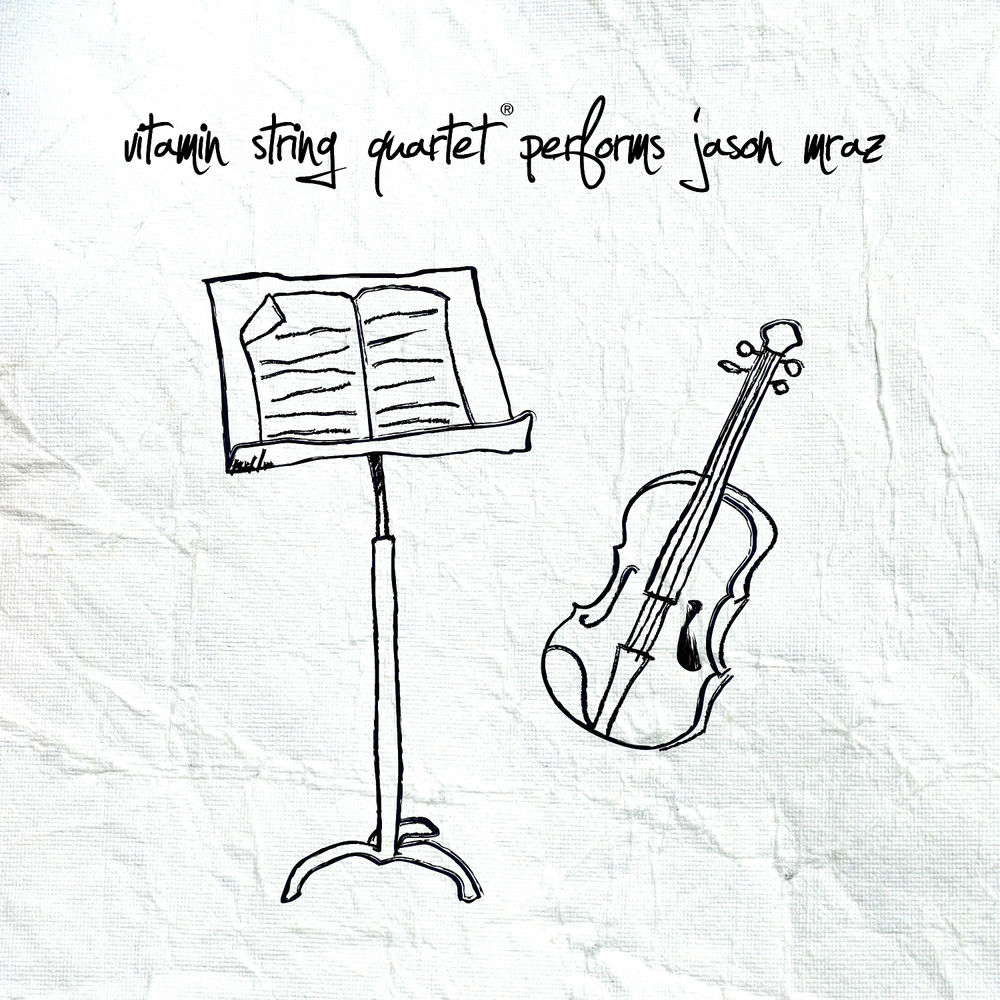 vitamin string quartet® performs jason mraz